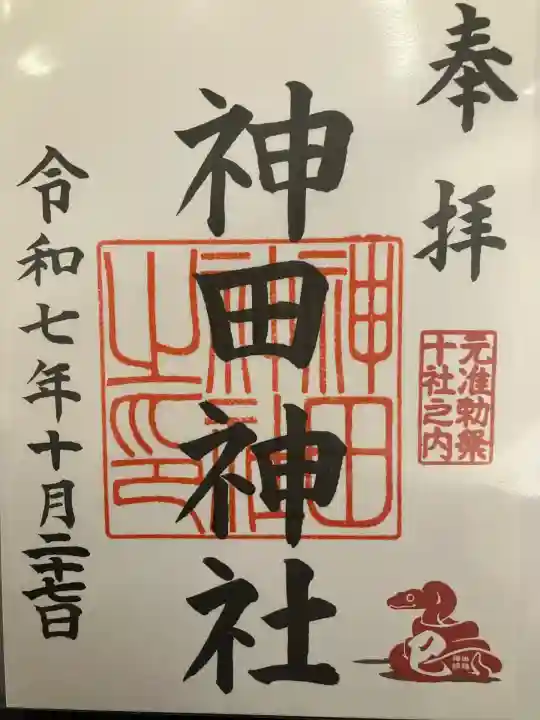 奉拝
元准勅祭
十社之内
巳
神田神社
神田
神社
之印
令和七年十月二十七日